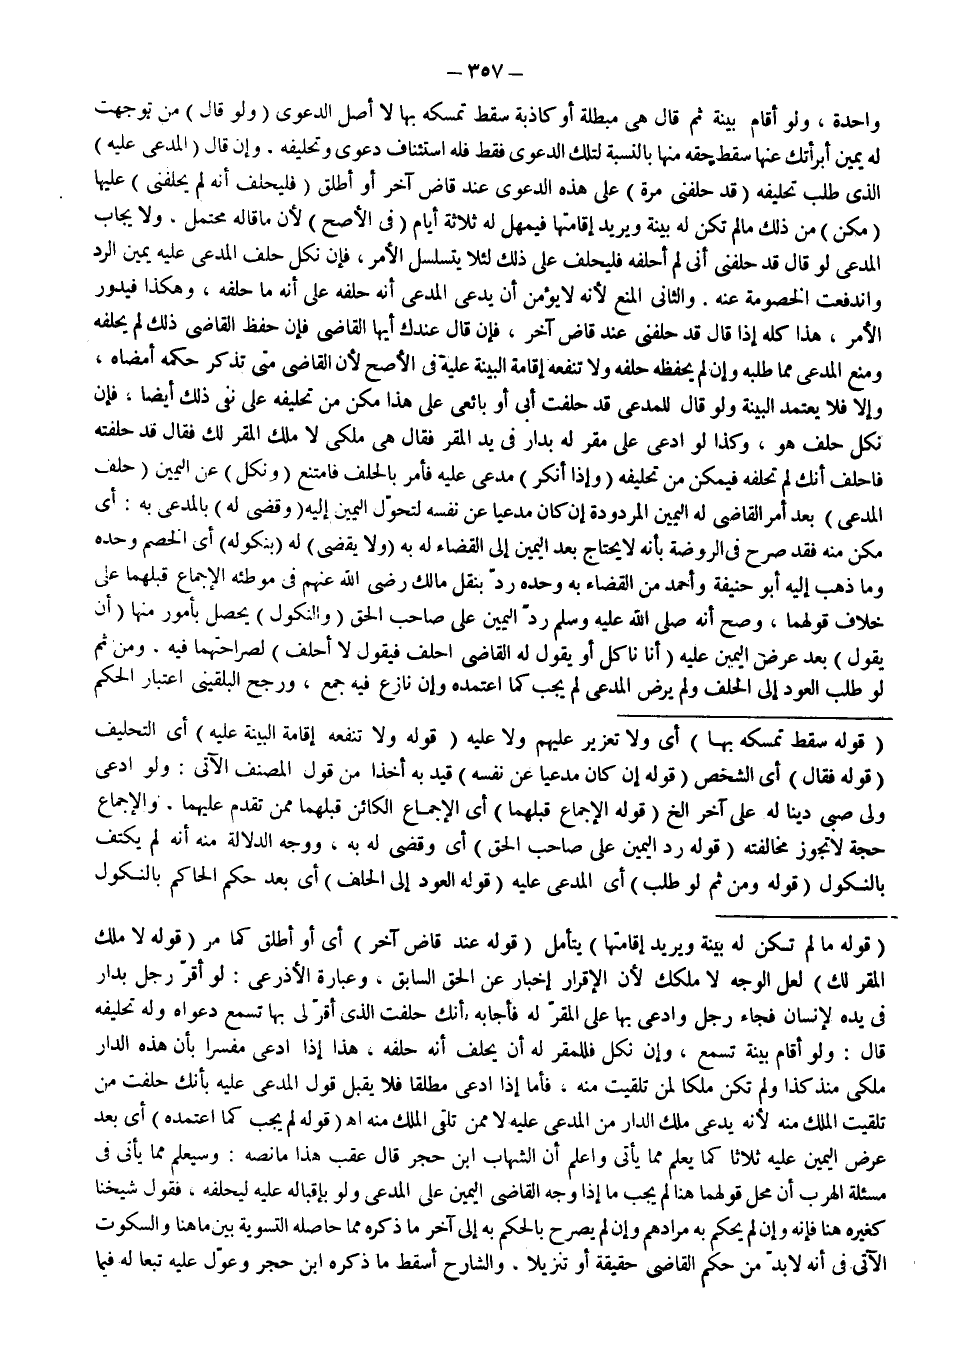 — ٣٥٧ —
واحدة ، ولو أقام بينة ثم قال هى مبطلة أو كاذبة سقط تمسكه بها لا أصل الدعوى ( ولو قال ) من توجهت
له يمين أبرأتك عنها سقط حقه منها بالنسبة لتلك الدعوى فقط فله استئناف دعوى وتحليفه . وإن قال ( المدعى عليه )
الذى طلب تحليفه ( قد حلفنى مرة ) على هذه الدعوى عند قاض آخر أو أطلق ( فليحلف أنه لم يحلفنى ) عليها
( مكن ) من ذلك مالم تكن له بينة ويريد إقامتها فيمهل له ثلاثة أيام ( فى الأصح ) لأن ماقاله محتمل . ولا يجاب
المدعى لو قال قد حلفنى أنى لم أحلفه فليحلف على ذلك لئلا يتسلسل الأمر ، فإن نكل حلف المدعى عليه يمين الرد
واندفعت الخصومة عنه . والثانى المنع لأنه لايؤمن أن يدعى المدعى أنه حلفه على أنه ما حلفه ، وهكذا فيدور
الأمر ، هذا كله إذا قال قد حلفنى عند قاض آخر ، فإن قال عندك أيها القاضى فإن حفظ القاضى ذلك لم يحلفه
ومنع المدعى مما طلبه وإن لم يحفظه حلفه ولا تنفعه إقامة البينة عليه فى الأصح لأن القاضى متى تذكر حكمه أمضاه ،
وإلا فلا يعتمد البينة ولو قال للمدعى قد حلفت أبى أو بائعى على هذا مكن من تحليفه على نفى ذلك أيضا ، فإن
نكل حلف هو ، وكذا لو ادعى على مقر له بدار فى يد المقر فقال هى ملكى لا ملك المقر لك فقال قد حلفته
فاحلف أنك لم تحلفه فيمكن من تحليفه ( وإذا أنكر ) مدعى عليه فأمر بالحلف فامتنع ( ونكل ) عن اليمين ( حلف
المدعى ) بعد أمر القاضى له اليمين المردودة إن كان مدعيا عن نفسه لتحوّل اليمين إليه( وقضى له ) بالمدعى به : أى
مكن منه فقد صرح فى الروضة بأنه لايحتاج بعد اليمين إلى القضاء له به (ولا يقضى) له (بنكوله) أى الخصم وحده
وما ذهب إليه أبو حنيفة وأحمد من القضاء به وحده ردّ بنقل مالك رضى الله عنهم فى موطئه الإجماع قبلهما على
خلاف قولهما ، وصح أنه صلى الله عليه وسلم ردّ اليمين على صاحب الحق ( والنكول ) يحصل بأمور منها ( أن
يقول ) بعد عرض اليمين عليه ( أنا ناكل أو يقول له القاضى احلف فيقول لا أحلف ) لصراحتهما فيه . ومن ثم
لو طلب العود إلى الحلف ولم يرض المدعى لم يجب كما اعتمده وإن نازع فيه جمع ، ورجح البلقينى اعتبار الحكم
( قوله سقط تمسكه بها ) أى ولا تعزير عليهم ولا عليه ( قوله ولا تنفعه إقامة البينة عليه ) أى التحليف
( قوله فقال ) أى الشخص ( قوله إن كان مدعيا عن نفسه ) قيد به أخذا من قول المصنف الآتى : ولو ادعى
ولى صبى دينا له على آخر الخ ( قوله الإجماع قبلهما ) أى الإجماع الكائن قبلهما ممن تقدم عليهما . والإجماع
حجة لاتجوز مخالفته ( قوله رد اليمين على صاحب الحق ) أى وقضى له به ، ووجه الدلالة منه أنه لم يكتف
بالنكول ( قوله ومن ثم لو طلب ) أى المدعى عليه ( قوله العود إلى الحلف ) أى بعد حكم الحاكم بالنكول
( قوله ما لم تكن له بينة ويريد إقامتها ) يتأمل ( قوله عند قاض آخر ) أى أو أطلق كما مر ( قوله لا ملك
المقر لك ) لعل الوجه لا ملكك لأن الإقرار إخبار عن الحق السابق ، وعبارة الأذرعى : لو أقرّ رجل بدار
فى يده لإنسان فجاء رجل وادعى بها على المقرّ له فأجابه ,أنك حلفت الذى أقرّ لى بها تسمع دعواه وله تحليفه
قال : ولو أقام بينة تسمع ، وإن نكل فللمقر له أن يحلف أنه حلفه ، هذا إذا ادعى مفسرا بأن هذه الدار
ملكى منذ كذا ولم تكن ملكا لمن تلقيت منه ، فأما إذا ادعى مطلقا فلا يقبل قول المدعى عليه بأنك حلفت من
تلقيت الملك منه لأنه يدعى ملك الدار من المدعى عليه لا ممن تلقى الملك منه اه ( قوله لم يجب كما اعتمده ) أى بعد
عرض اليمين عليه ثلاثا كما يعلم مما يأتى واعلم أن الشهاب ابن حجر قال عقب هذا مانصه : وسيعلم مما يأتى فى
مسئلة الهرب أن محل قولهما هنا لم يجب ما إذا وجه القاضى اليمين على المدعى ولو بإقباله عليه ليحلفه ، فقول شيخنا
كغيره هنا فإنه وإن لم يحكم به مرادهم وإن لم يصرح بالحكم به إلى آخر ما ذكره مما حاصله التسوية بين ماهنا والسكوت
الآتى فى أنه لابدّ من حكم القاضى حقيقة أو تنزيلا . والشارح أسقط ما ذكره ابن حجر وعوّل عليه تبعا له فيما